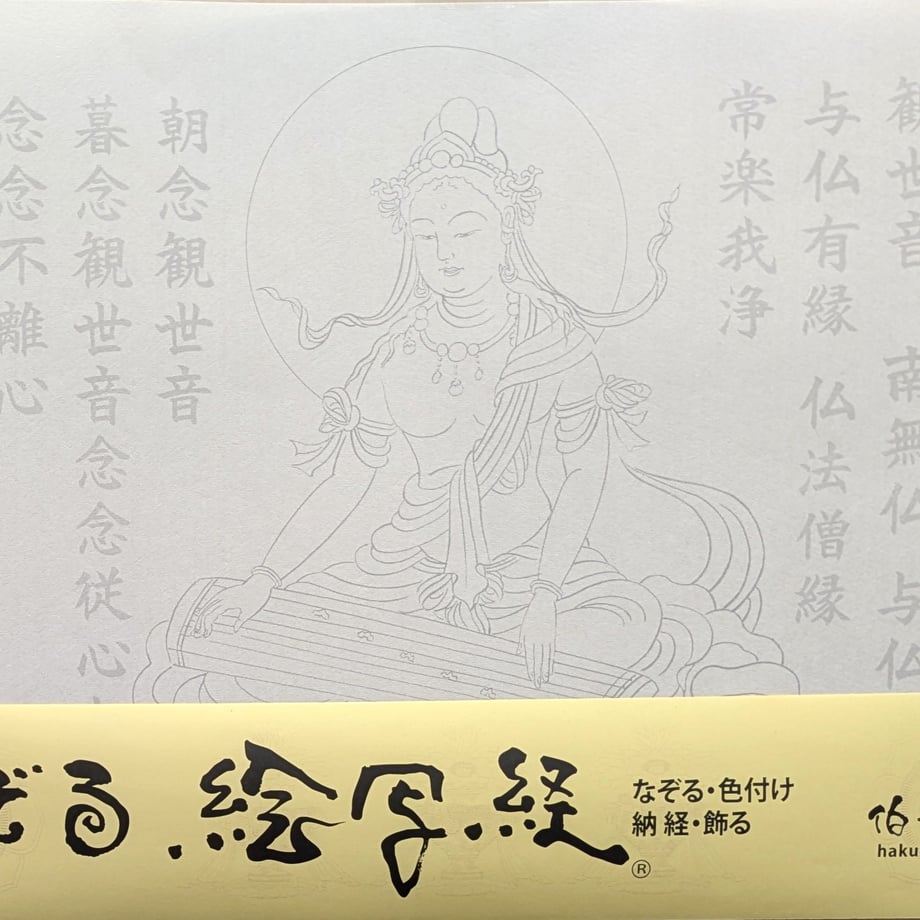 観世音 南無仏 与仏
与仏有縁 仏法僧縁
常楽我浄
朝念観世音
暮念観世音念念従心
念念不離心
ぞる 絵写経®
なぞる・色付け
納経・飾る
伯
haku